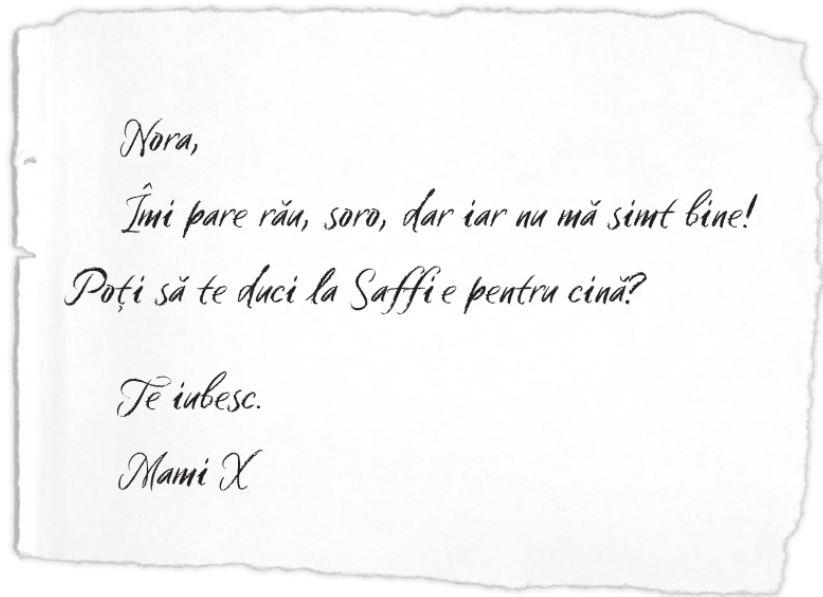 Nora,
Îmi pare rău, soro, dar iar nu mă simt bine!
Poți să te duci la Saffie pentru cină?
Te iubesc.
Mami X